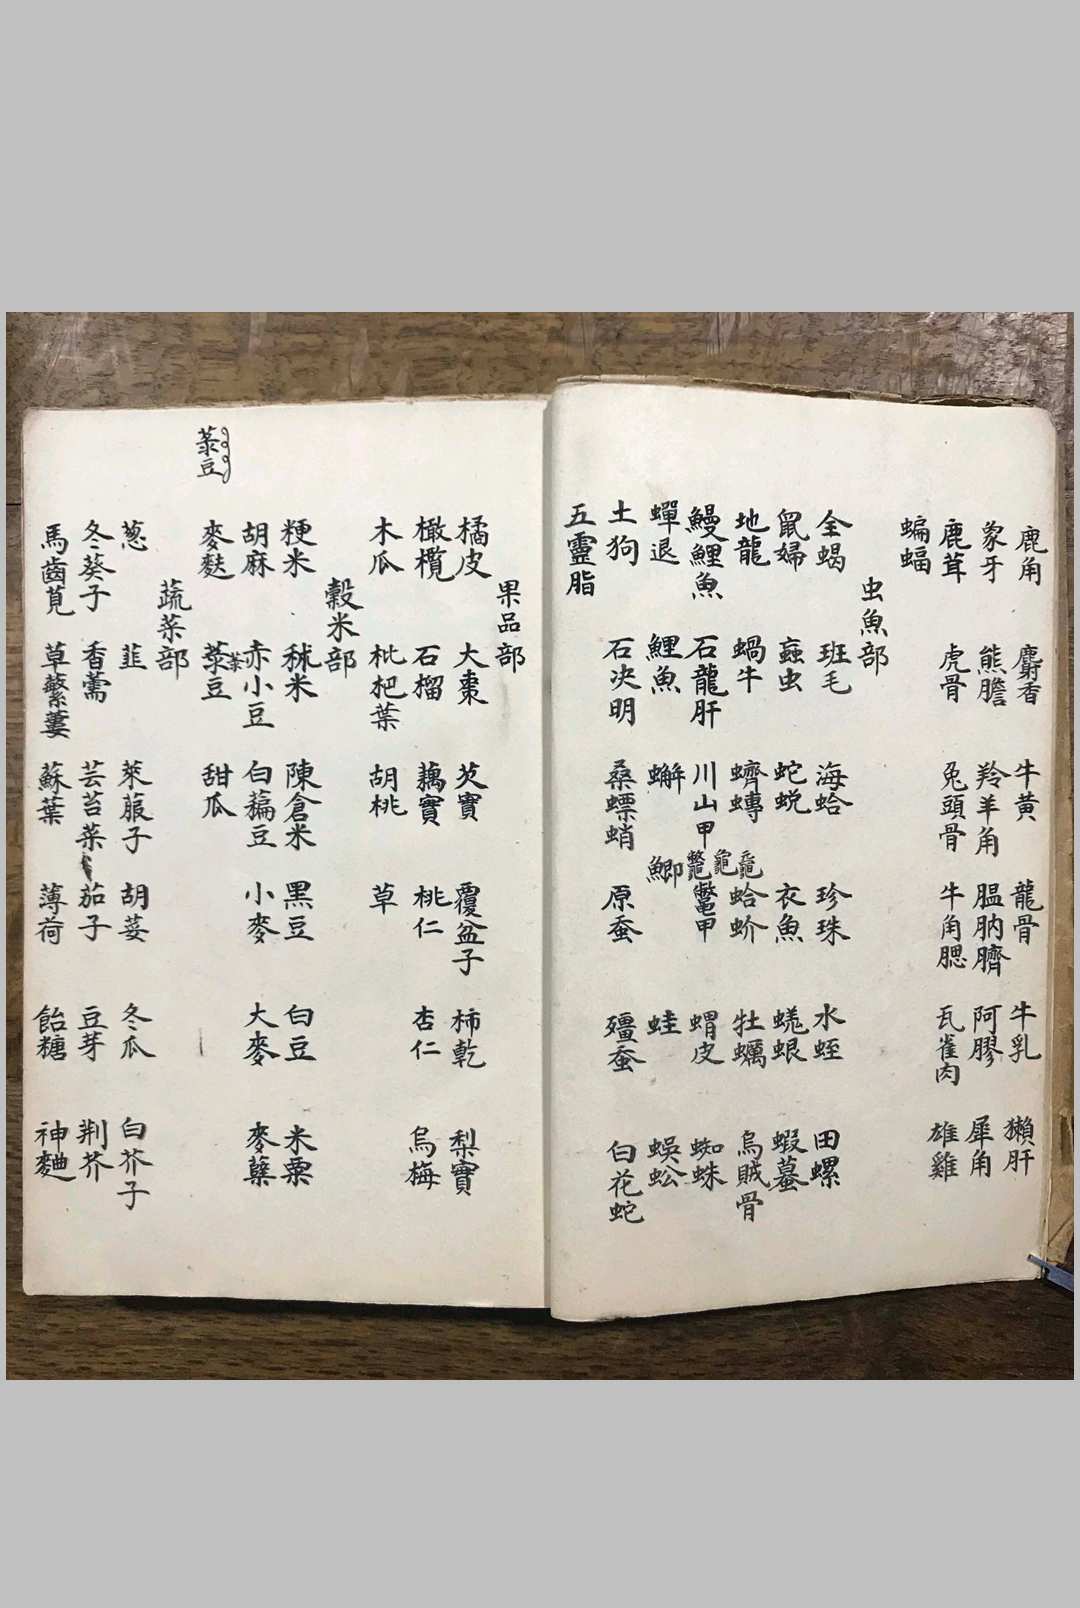 鹿角 麝香 牛黄 龍骨 牛乳 獺肝
象牙 熊膽 羚羊角 膃肭臍 阿膠 犀角
鹿茸 虎骨 兔頭骨 牛角腮 瓦雀肉 雄雞
蝙蝠
虫魚部
全蝎 班毛 海蛤 珍珠 水蛭 田螺
鼠婦 蝱虫 蛇蛻 衣魚 蜣蜋 蝦蟇
地龍 蝸牛 蠐螬 蛤蚧 牡蠣 烏賊骨
龜
鰻鯉魚 石龍肝 川山甲 鱉甲 蝟皮 蜘蛛
蟬退 鯉魚 蠏 鯽 蛙 蜈蚣
土狗 石决明 桑螵蛸 原蚕 殭蚕 白花蛇
五靈脂
果品部
橘皮 大棗 芡實 覆盆子 柿乾 梨實
橄欖 石榴 藕實 桃仁 杏仁 烏梅
木瓜 枇杷葉 胡桃 草
穀米部
粳米 秫米 陳倉米 黑豆 白豆 米粟
胡麻 赤小豆 白藊豆 小麥 大麥 麥蘖
麥麩 菉豆 甜瓜
菉豆
蔬菜部
葱 韮 萊菔子 胡荽 冬瓜 白芥子
冬葵子 香薷 芸苔菜 茄子 豆芽 荆芥
馬齒莧 草蘩蔞 蘇葉 薄荷 飴糖 神麯